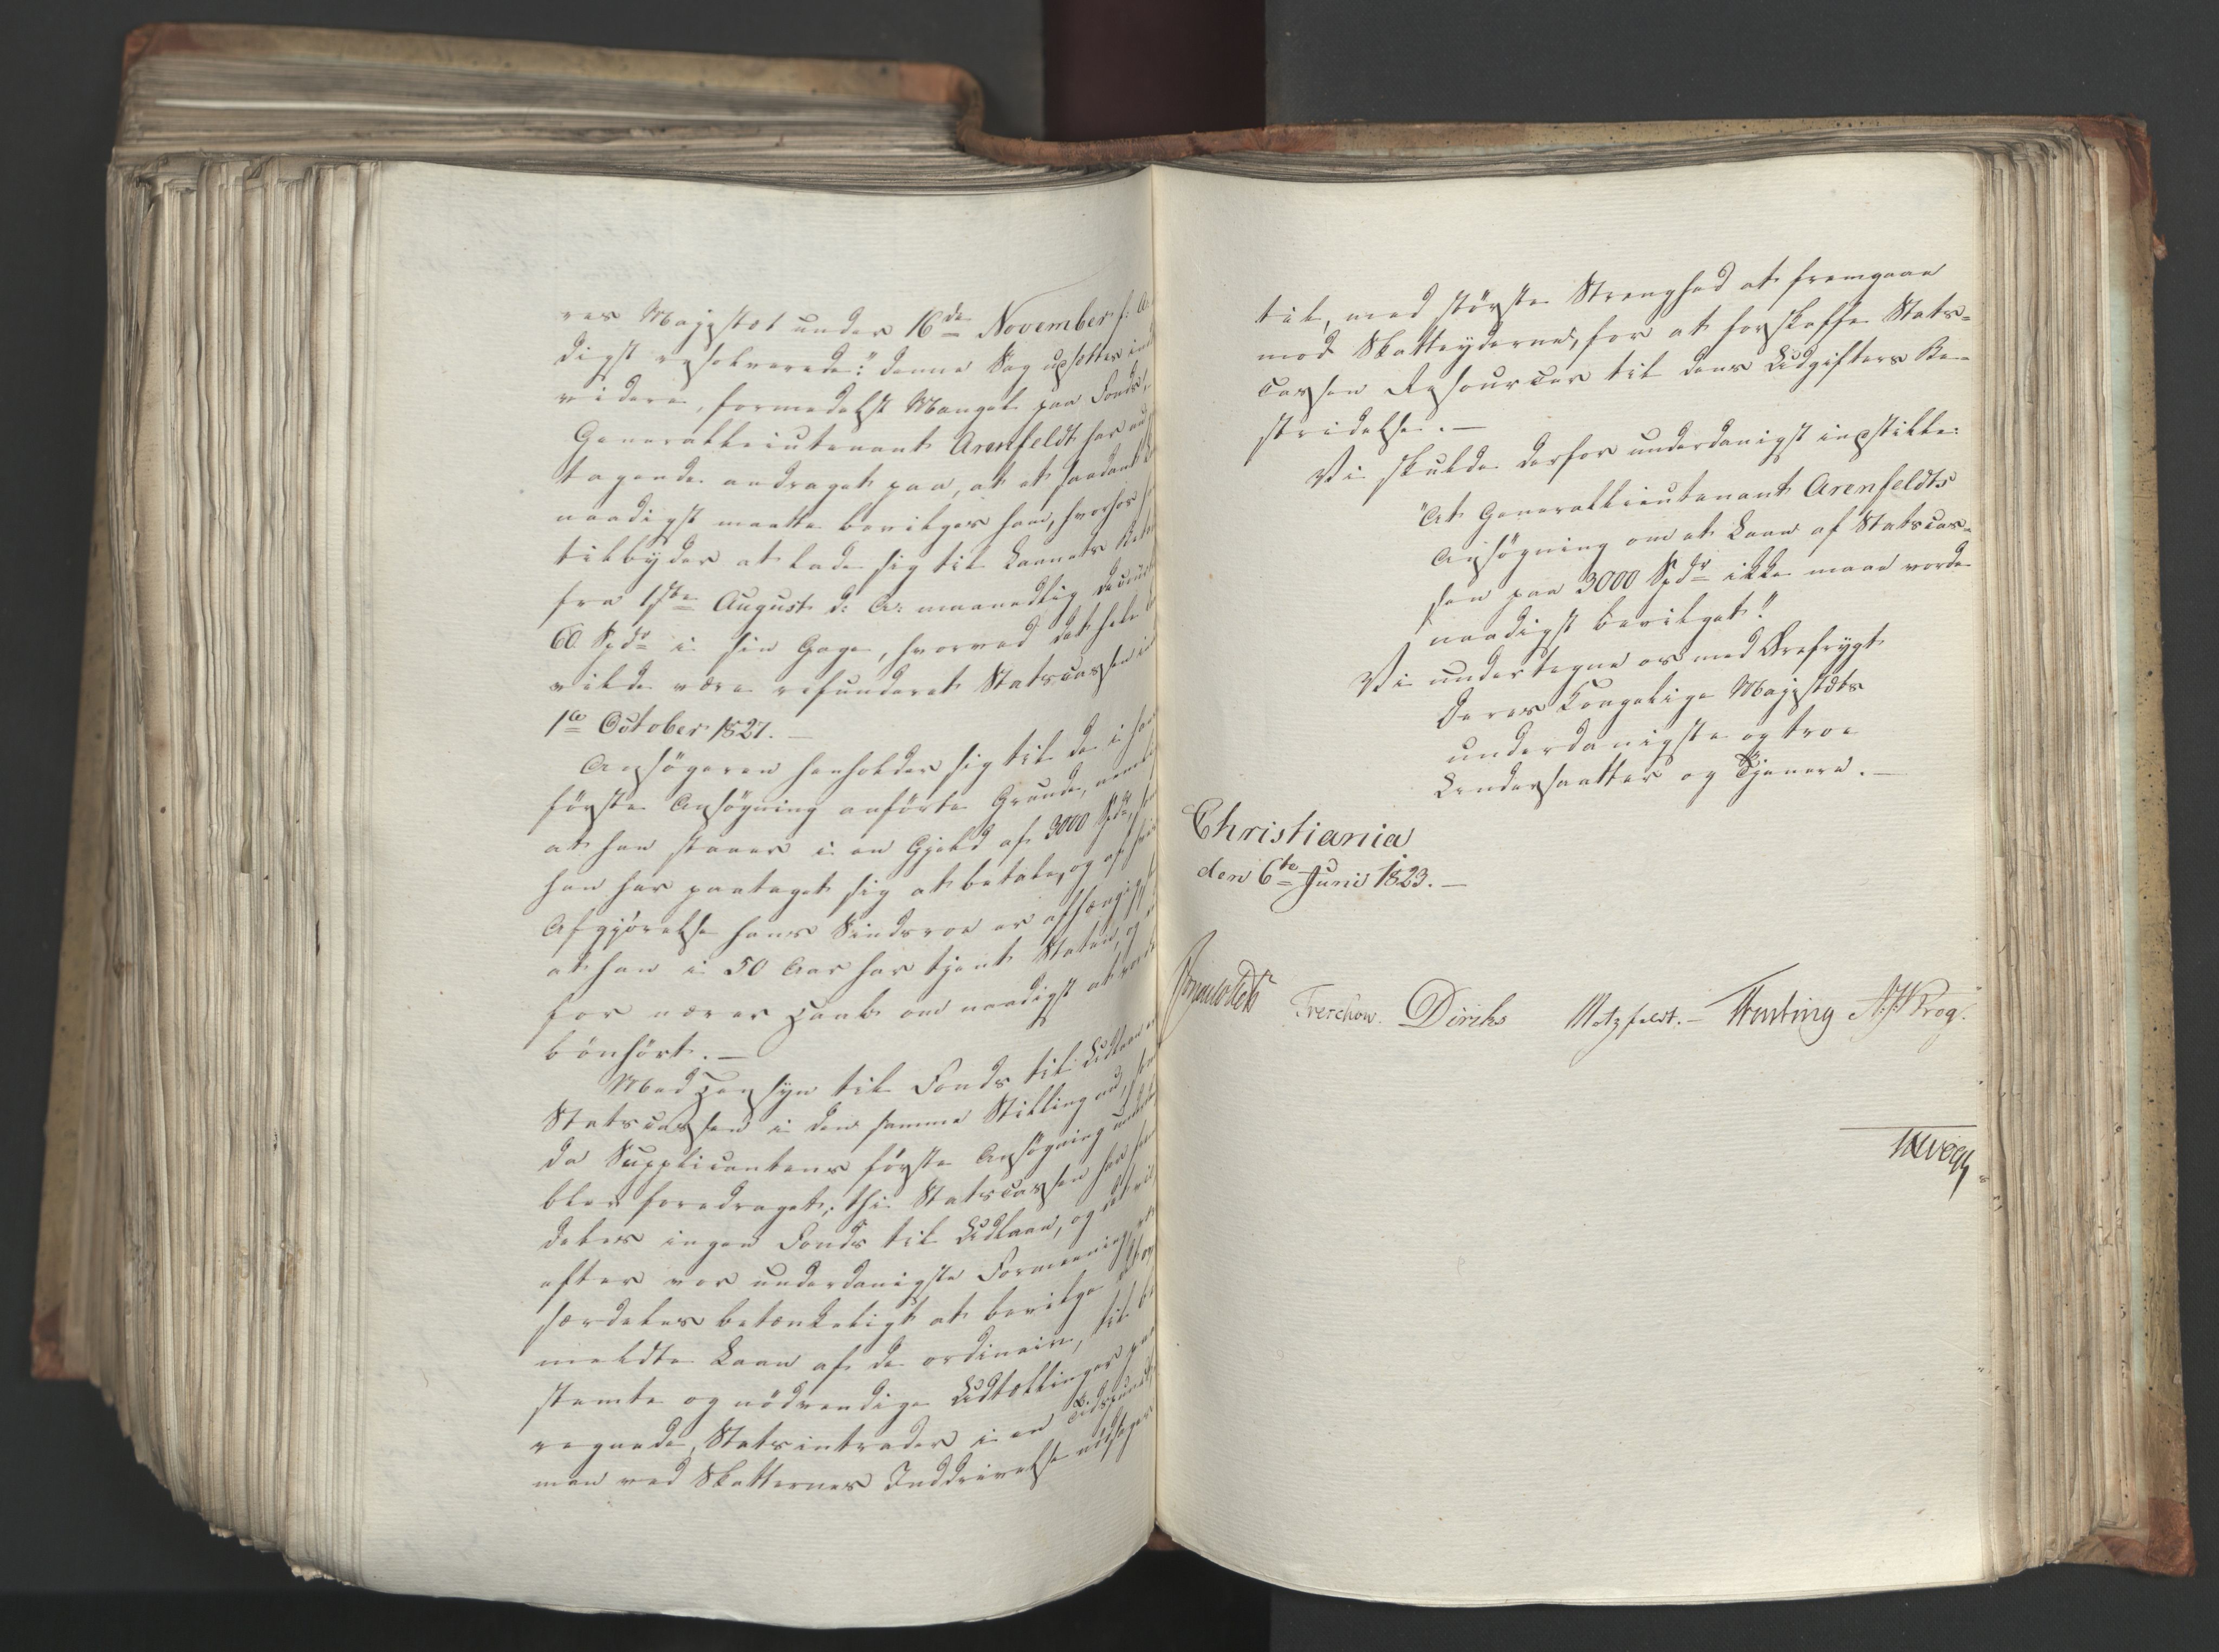 res Majestæt under 16de November f: A:
digst resolverede: "denne Sag udsettes indt
videre, formedelst Mangel paa Fonds",
Generallieutenant Arenfeldt har
tagende andraget paa, at et saadant
naadigst maatte bevilges ham, hvorhos
tilbyder at lade sig til Laanets
fra 1ste August d: A: maanedlig
60 Spdr i sin Gage, hvorved det hele
vilde være refunderet Statscassen
1te October 1827. —
Ansøgeren henholder sig til de i
første Ansøgning anførte Grunde,
at han staaer i en Gjeld af 3000 Spdr,
han har paataget sig at betale, og af
Afgjørelse hans Sindsroe er afhængig
at han i 50 Aar har tjent Staten, og
for nærer Haab om naadigst at vorde
bönhört. —
Med Hensyn til Fonds til Udlaan er
Statscassen i den samme Stilling nu,
da Supplicantens første Ansøgning
blev foredraget; thi Statscassen har
deles ingen Fonds til Udlaan, og det vil
efter vor underdanigste Formeening
særdeles betænkeligt at bevilge
meldte Laan af de ordinaire, til be
stemte og nödvendige Udtællinger
regnede, Statsintrader i en Tidspunct,
man ved Skatternes Inddrivelse nödsages
til, med störste Strenghed at fremgaae
mod Skatteyderne, for at forskaffe Stats-
Cassen Resourcer til dens Udgifters Be-
stridelse. —
Vi skulde derfor underdanigst indstille:
"At Generallieutenant Arenfeldts
Ansögning om et Laan af Statscas-
sen paa 3000 Spdr ikke maae vorde
naadigst bevilget."
Vi undertegne os med Ærefrygt
Deres Kongelige Majestæts
underdanigste og troe
Undersaatter og Tjenere. —
Christiania
den 6te Juni 1823. —
Treschow. Diriks Motzfeldt. — N.J. Krog.